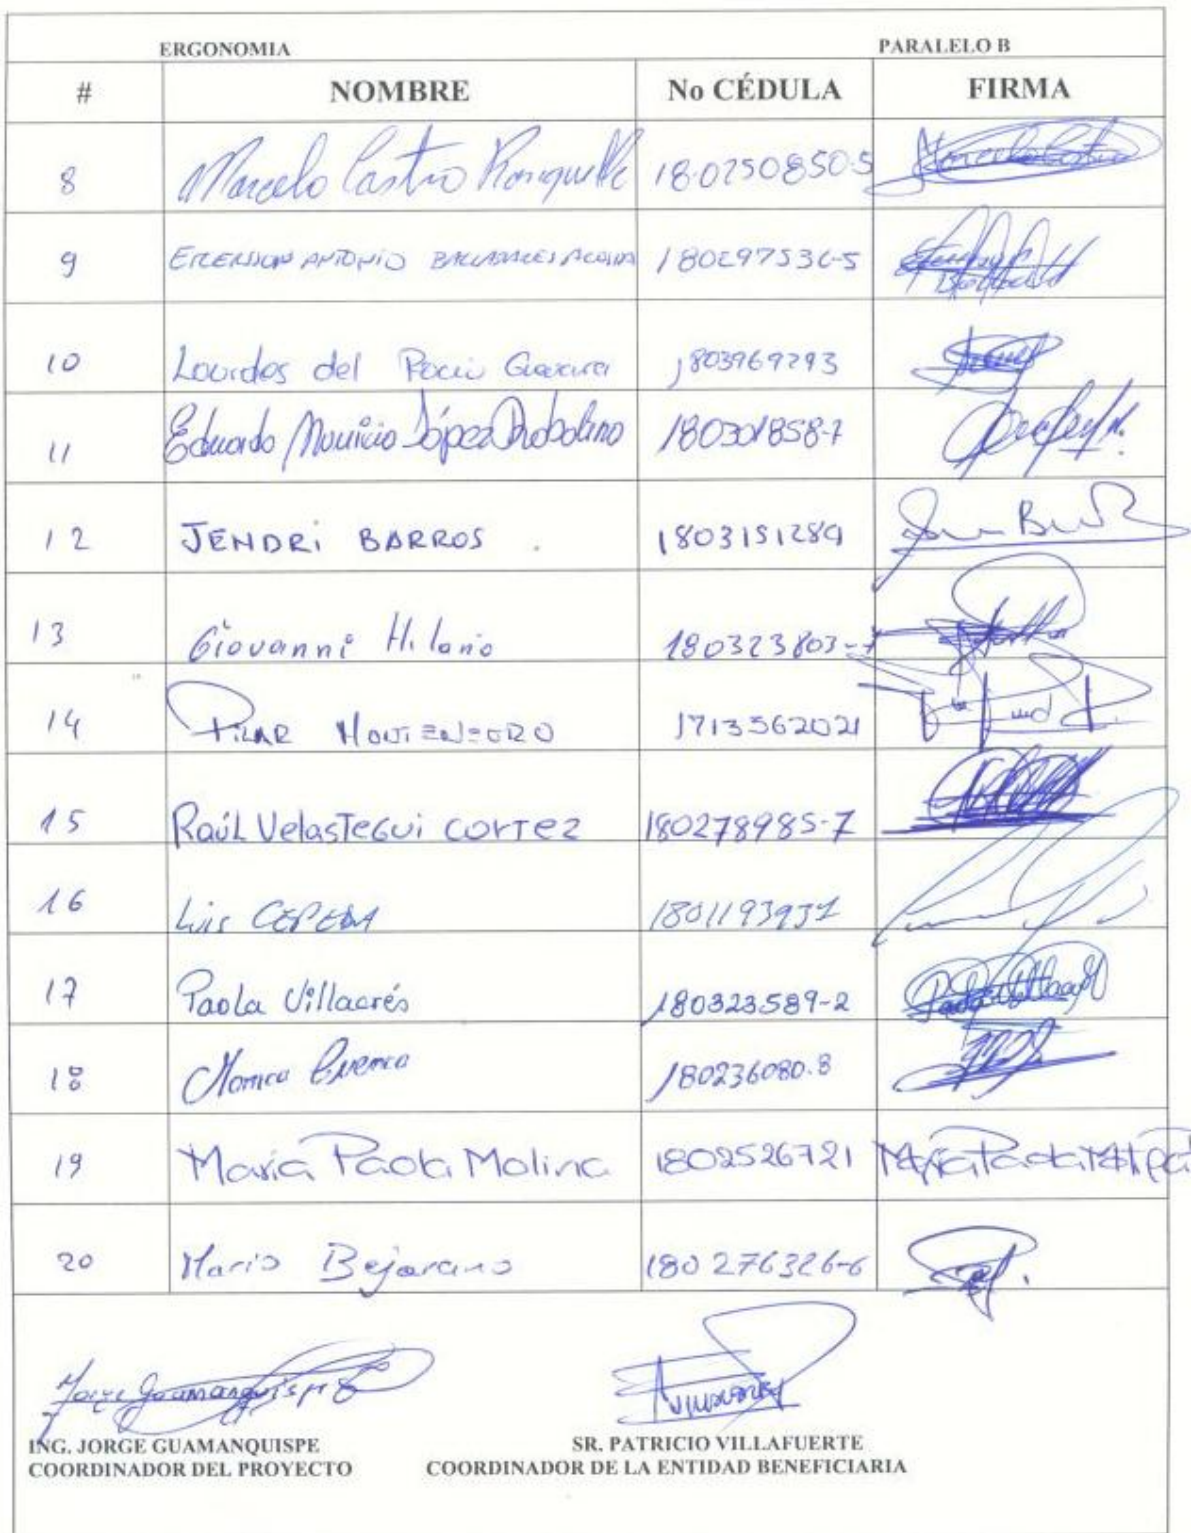 ERGONOMIA PARALELO B
# NOMBRE No CÉDULA FIRMA
8 Marcelo Castro Ronquillo 18-0250850-5 Marcelo Castro
9 ANTONIO 180297536-5
10 Lourdes del Rocio Guevara 1803969293
11 Eduardo Mauricio López Robalino 180301858-7
12 JENDRi BARROS . 1803151289
13 Giovanni Hilario 180323803-7
14 PILAR MONTENEGRO 1713562021
15 Raúl Velastegui cortez 180278985-7
16 Luis CEPEDA 1801193931
17 Paola Villacrés 180323589-2
18 Monica Cuenca 180236080-8
19 Maria Paola Molina 1802526721 Maria Paola Molina
20 Mario Bejarano 180276326-6
Jorge Guamanquispe
ING. JORGE GUAMANQUISPE SR. PATRICIO VILLAFUERTE
COORDINADOR DEL PROYECTO COORDINADOR DE LA ENTIDAD BENEFICIARIA